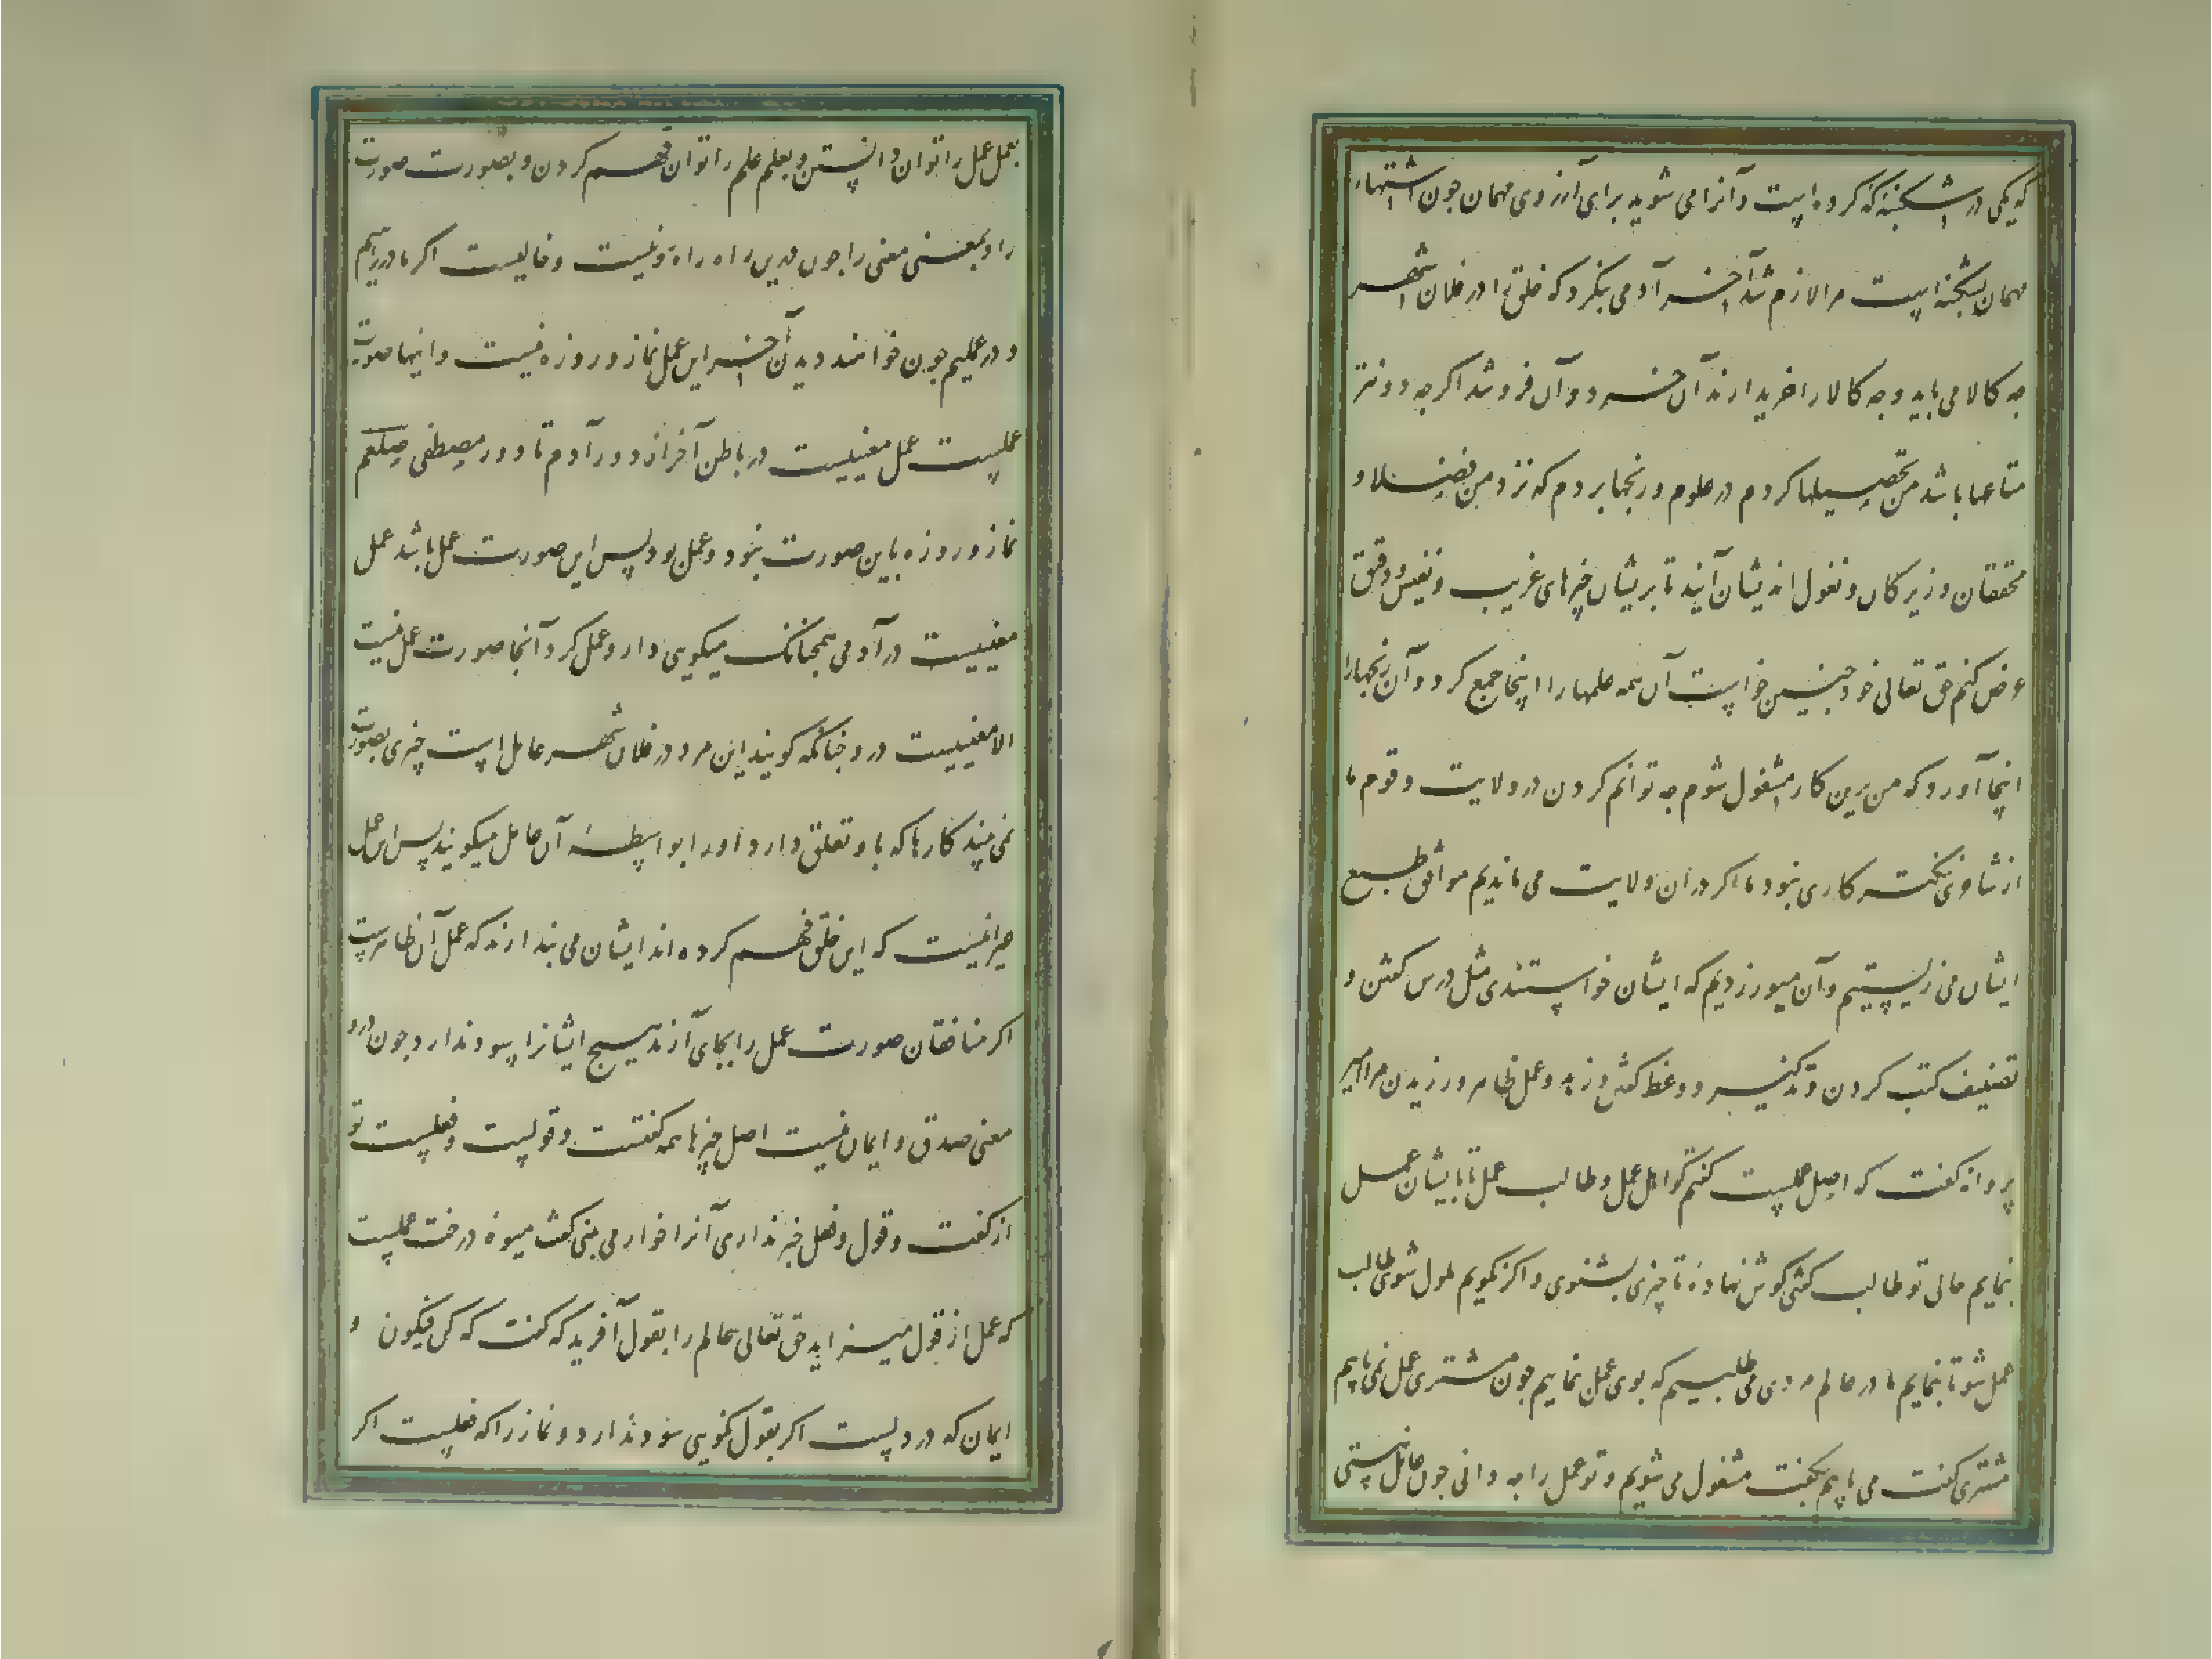 که یکی در اشکنبه که کرده است و آنرا می شوید برای آرزوی مهمان جون اشتهاء
مهمان بشکنبه است مرا لازم شد آخر آدمی بنکرد که خلق را در فلان شهر
جه کالا می باید و جه کالا را خریدارند آن خرد و آن فروشد اکرجه دونتر
متاعها باشد من تحصیلها کردم در علوم و رنجها بردم که نزد من فضلا و
محققان و زیرکان و نغول اندیشان آیند تا بریشان جیزهای غریب و نفیس و دقیق
عرض کنم حق تعالی خود جنین خواست آن همه علمها را اینجا جمع کرد و آن رنجها را
اینجا آورد که من برین کار مشغول شوم جه توانم کردن در ولایت و قوم ما
از شاعری ننکتر کاری نبود ما اکر در آن ولایت می ماندیم موافق طبع
ایشان می زیستیم و آن میورزدیم که ایشان خواستندی مثل درس کفتن و
تصنیف کتب کردن و تذکیر و وعظ کفتن و زهد و عمل ظاهر ورزیدن مرا امیر
پروانه کفت که اصل عملست کفتم کو اهل عمل و طالب عمل تا بایشان عمل
نمایم حالی تو طالب کفتی کوش نهاده تا جیزی بشنوی و اکر نکویم ملول شوی طالب
عمل شو تا بنمایم ما در عالم مردی می طلبیم که بوی عمل نماییم جون مشتری عمل نمی یابیم
مشتری کفت می یابیم بکفت مشغول می شویم و تو عمل را جه دانی جون عامل نیستی
بعمل عمل را توان دانستن و بعلم علم را توان فهم کردن و بصورت صورت
را و بمعنی معنی را جون درین راه راه رو نیست و خالیست اکر ما در راهیم
و در عملیم جون خواهند دیدن آخر این عمل نماز و روزه نیست و اینها صورت
عملست عمل معنیست در باطن آخر از دور آدم تا دور مصطفی صلعم
نماز و روزه باین صورت نبود و عمل بود پس این صورت عمل باشد عمل
معنیست در آدمی همجنانک میکویی دارو عمل کرد و آنجا صورت عمل نیست
الا معنیست درو جنانکه کویند این مرد در فلان شهر عامل است جیزی بصورت
نمی بینند کارها که باو تعلق دارد او را بواسطه آن عامل میکویند پس این عمل
جیزا نیست که این خلق فهم کرده اند ایشان می بندارند که عمل آن ظاهرست
اکر منافقان صورت عمل را بجای آرند هیج ایشانرا سود ندارد جون درو
معنی صدق و ایمان نیست اصل جیزها همه کفتست و قولست و فعلیست تو
از کفت و قول و فعل خبر نداری آنرا خوار می بینی کفت میوه درخت عملست
که عمل از قول میزاید حق تعالی عالم را بقول آفرید که کفت که کن فیکون و
ایمان که در دلست اکر بقول نکویی سود ندارد و نماز را که فعلیست اکر